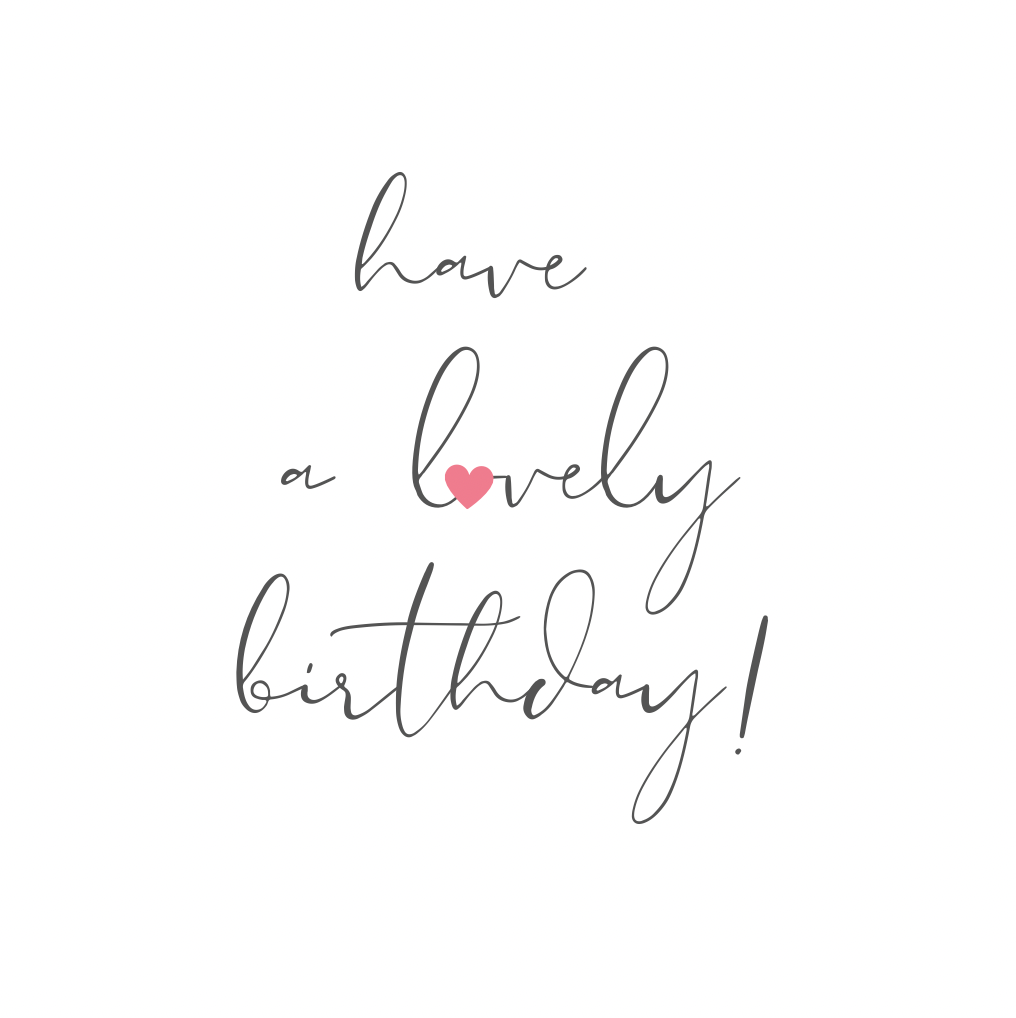 have
a lovely
birthday!